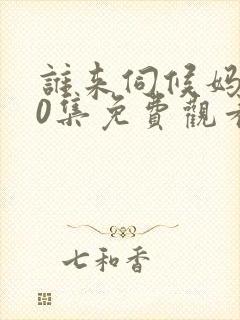 誰来伺候妈
0集免費觀看
七和香